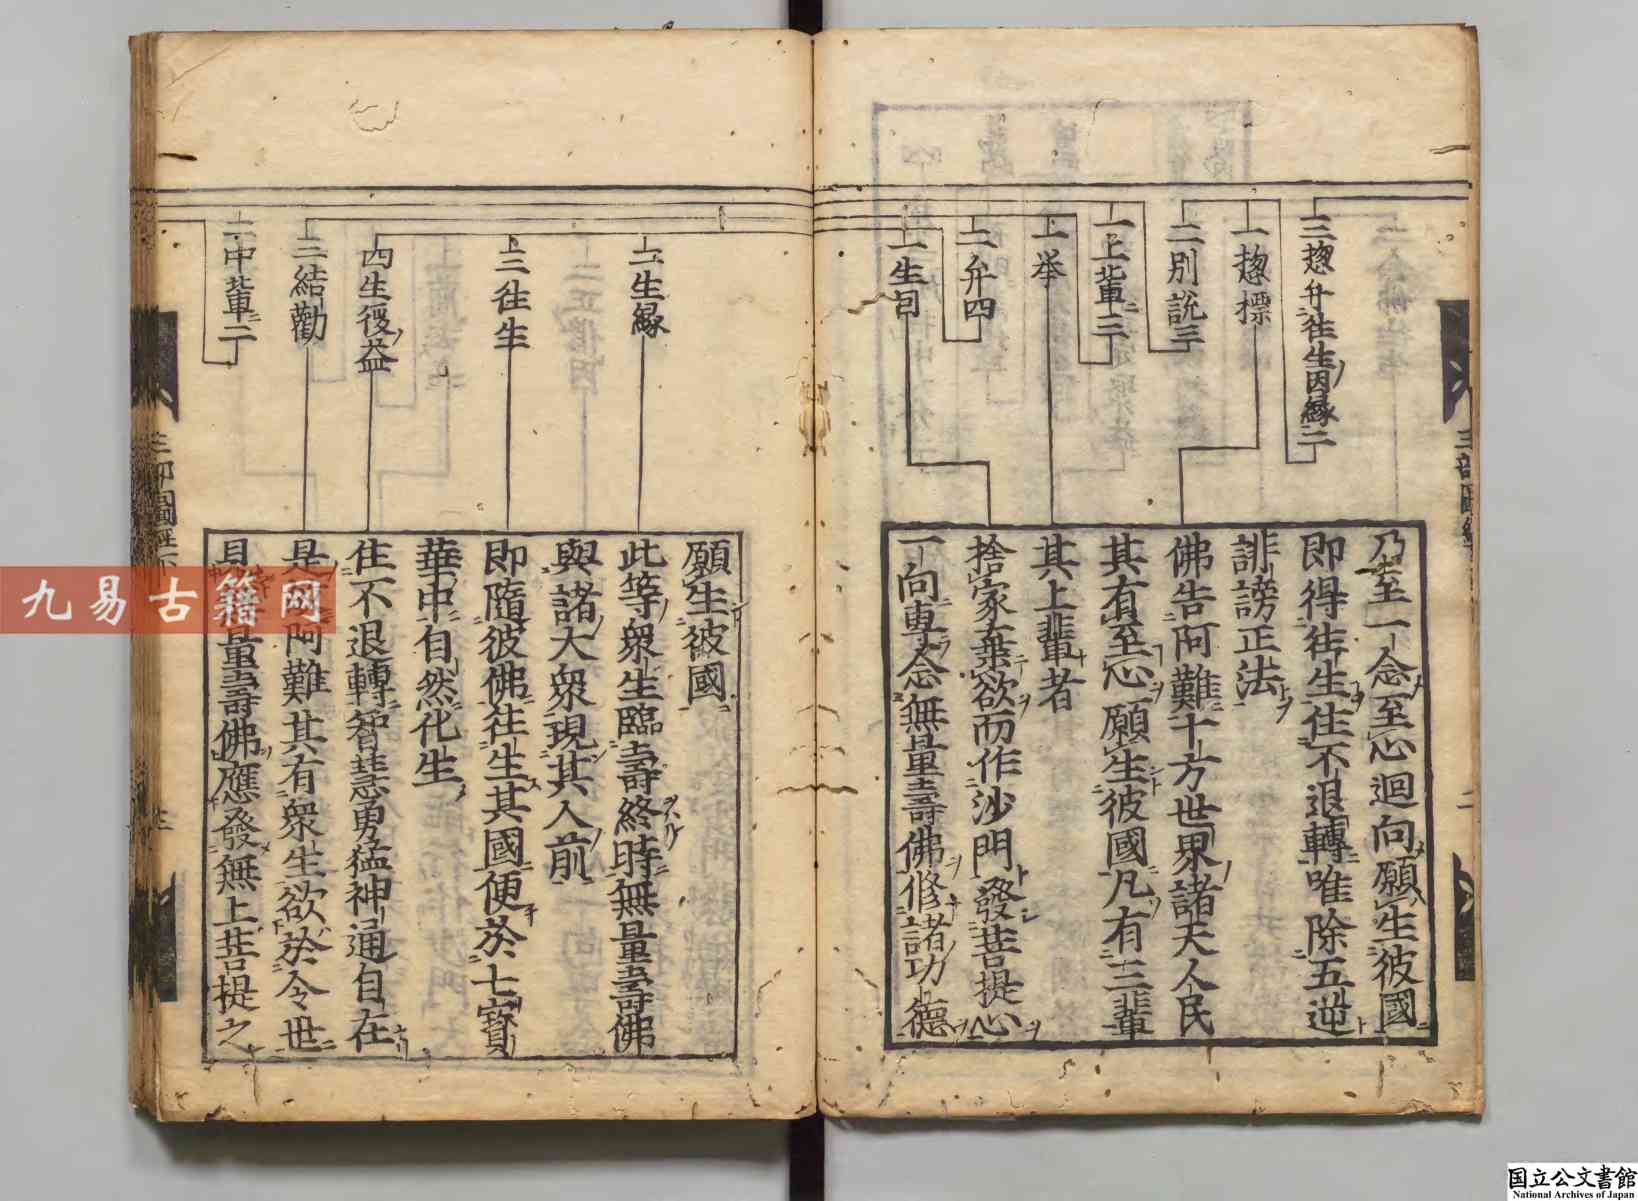 三惣弁往生因縁二
一惣標
二別説三
一上輩三
一挙
二弁四
一生因
乃至一念至心迴向願生彼國
即得往生住不退轉唯除五逆
誹謗正法
佛告阿難十方世界諸天人民
其有至心願生彼國凡有三輩
其上輩者
捨家棄欲而作沙門發菩提心
一向專念無量壽佛修諸功德
二生縁
三往生
四生後益
三結勸
二中輩二
願生彼國
此等衆生臨壽終時無量壽佛
與諸大衆現其人前
即隨彼佛往生其國便於七寳
華中自然化生
住不退轉智慧勇猛神通自在
是 阿難其有衆生欲於今世
見 量壽佛應發無上菩提之
三部圖經
九易古籍网
国立公文書館
National Archives of Japan